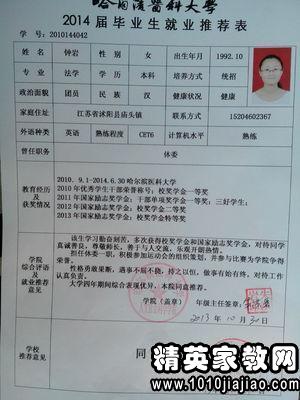 哈尔滨医科大学
2014届毕业生就业推荐表
学 号：2010144042
姓 名 钟岩 性 别 女 出生年月 1992.10
专 业 法学 学 历 本科 培养方式 统招
政治面貌 团员 民 族 汉 健康状况 健康
家庭住址 江苏省沭阳县庙头镇 联系方式 15204602367
外语种类 英语 熟练程度 CET6 计算机水平 熟练
曾任职务 体委
教育经历及获奖情况
2010. 9.1-2014.6.30 哈尔滨医科大学
2010年优秀学生干部荣誉称号；校奖学金一等奖
2011年国家励志奖学金；干部单项奖学金一等奖；三好学生；
2012年国家励志奖学金；校奖学金二等奖
2013年国家励志奖学金；校奖学金特等奖
学院综合评语及就业推荐意见
该生学习勤奋刻苦，多次获得校奖学金和国家励志奖学金，对待同学
真诚善良；尊敬师长，善于与人交流，乐观开朗热情。
担任体委一职，积极参加运动会的组织策划，并参与比赛为学院争得
荣誉。
性格勇敢果断，遇事不屈不挠，持之以恒，做事有始有终，对待工作
认真负责。
大学四年期间综合表现优异，本院同意推荐。
学院（盖章） 年级主任签章：
2013 年 10 月 30 日
学校推荐意见
同
精英家教网
www.1010jiajiao.com